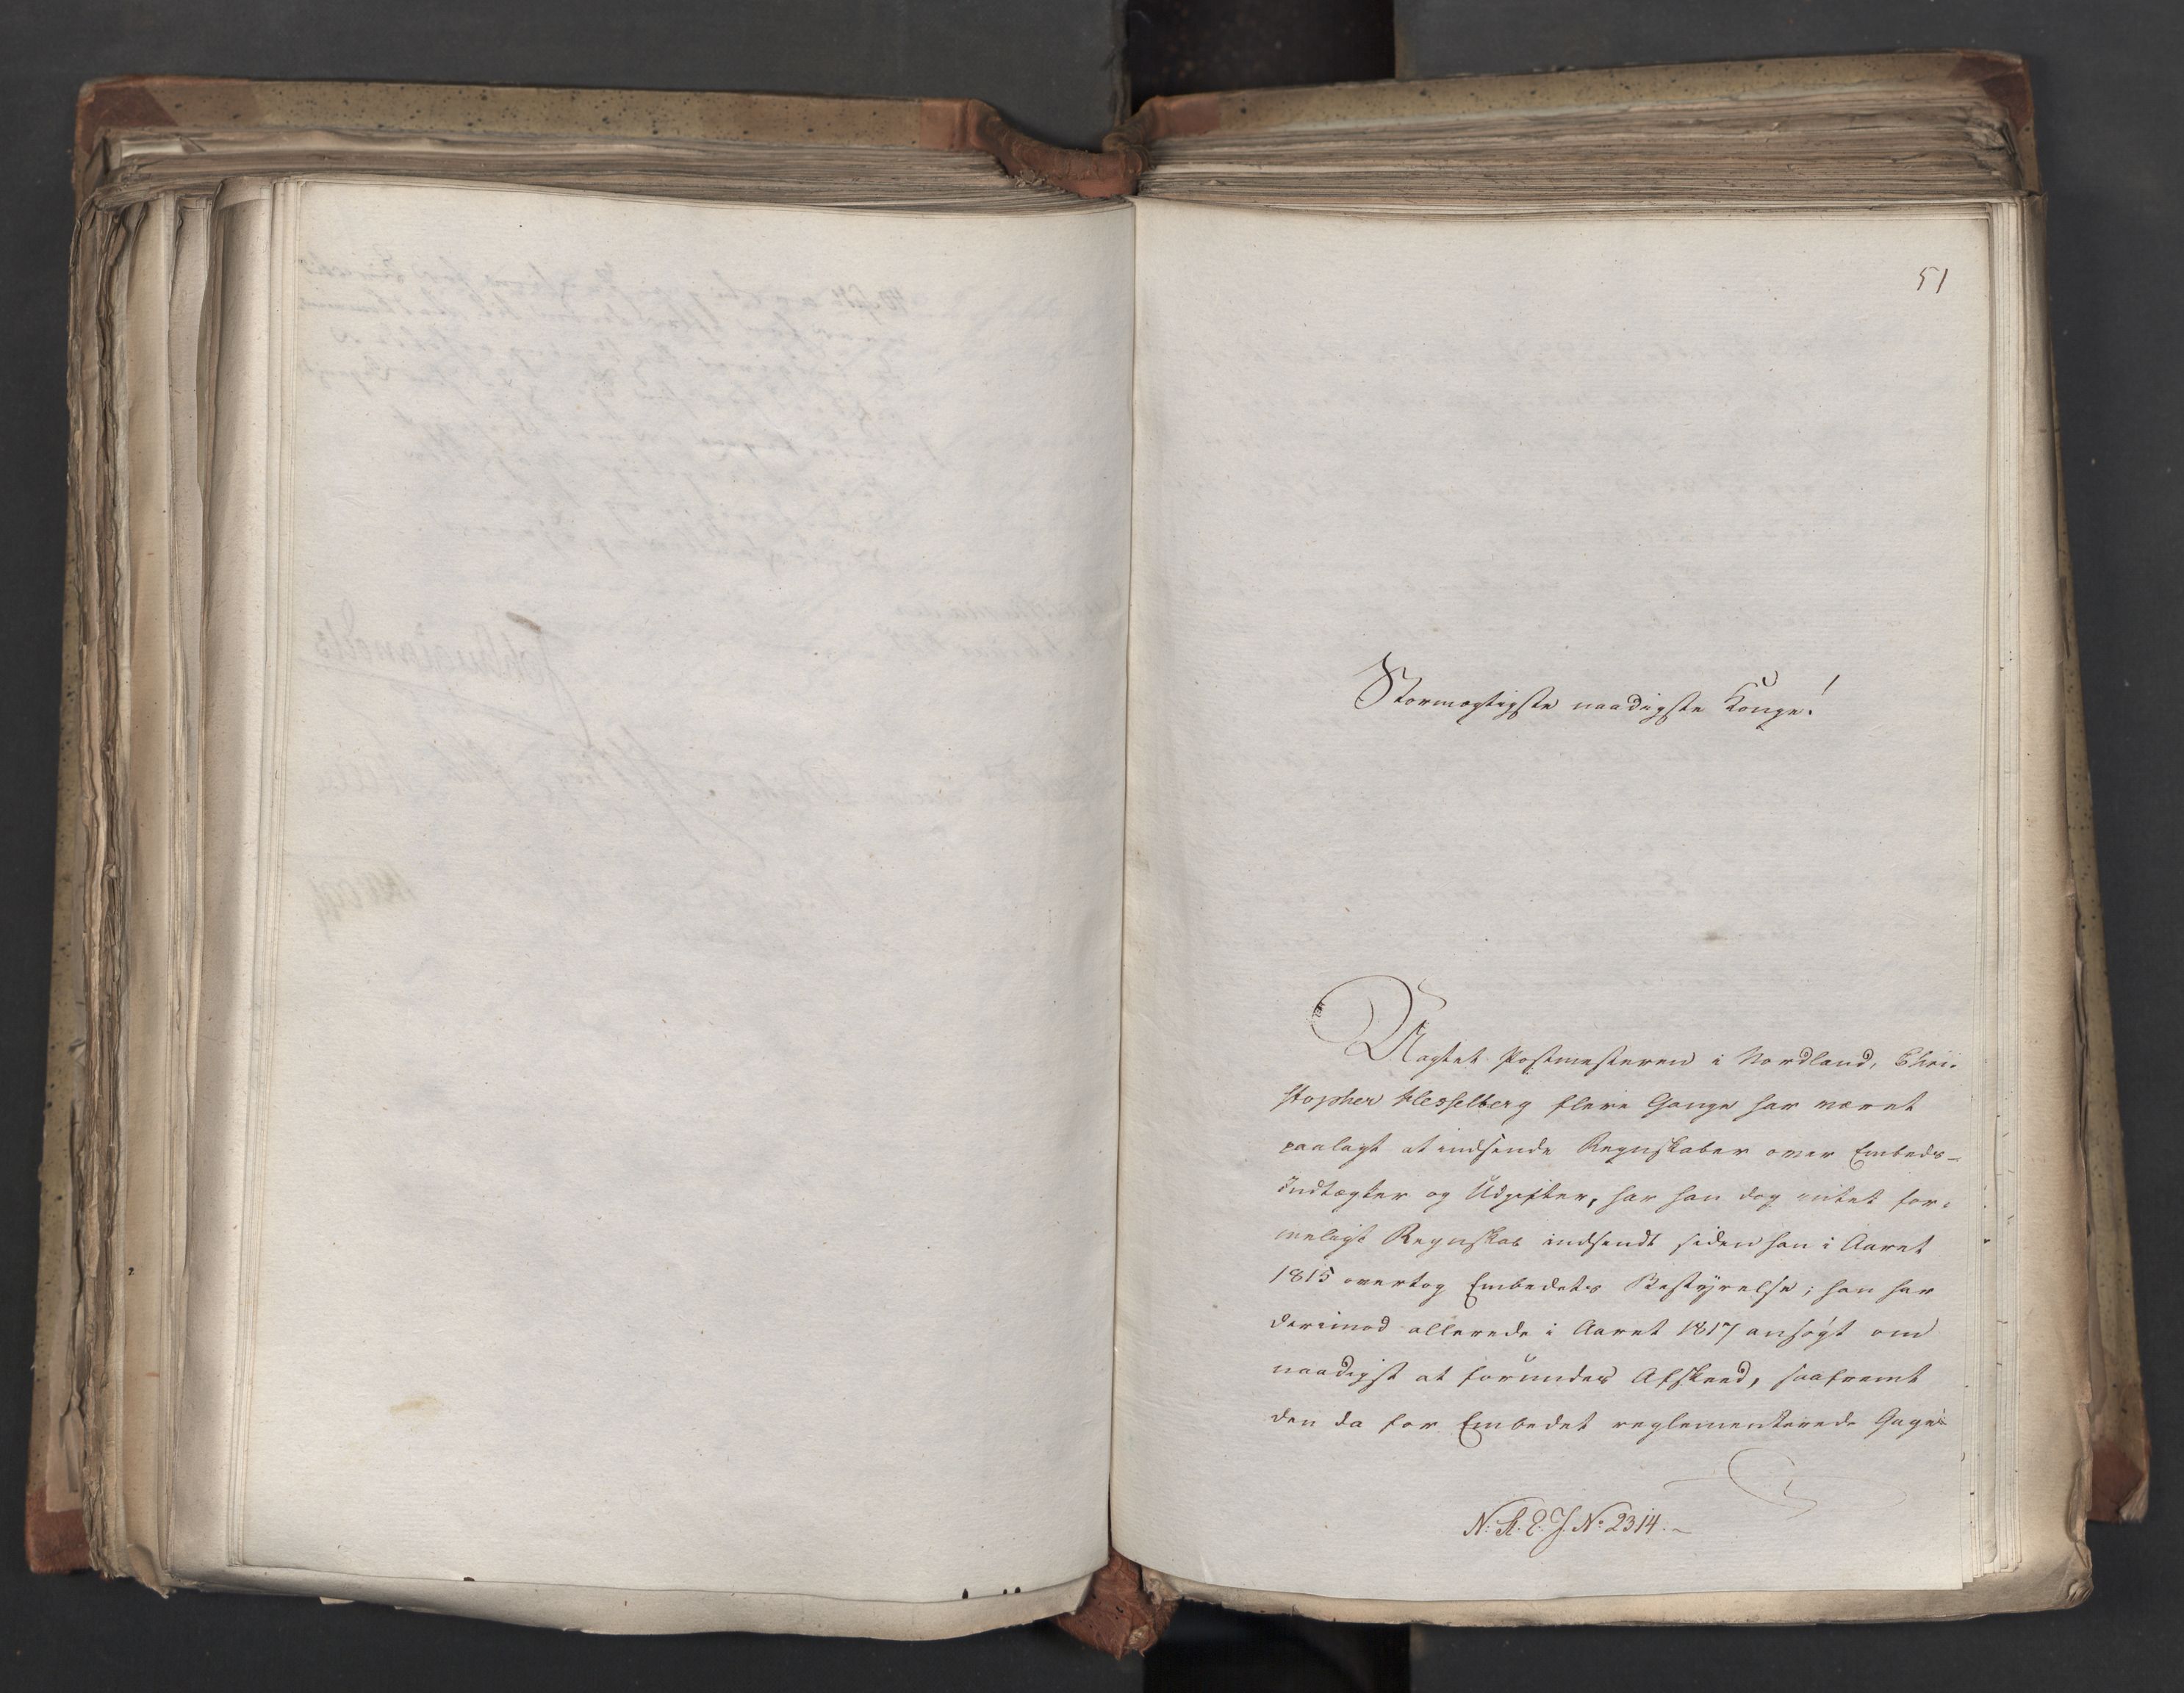 51
Stormægtigste naadigste Konge!
Uagtet Postmesteren i Nordland, Chri-
stopher Hesselberg flere Gange har været
paalagt at indsende Regnskaber over Embeds-
Indtægter og Udgifter, har han dog intet for-
meligt Regnskab indsendt siden han i Aaret
1815 overtog Embedets Bestyrelse; han har
derimod allerede i Aaret 1817 ansøgt om
naadigst at forundes Afskeed, saafremt
den da for Embedet reglementerede Gage
N: R. E. J. No 2314.